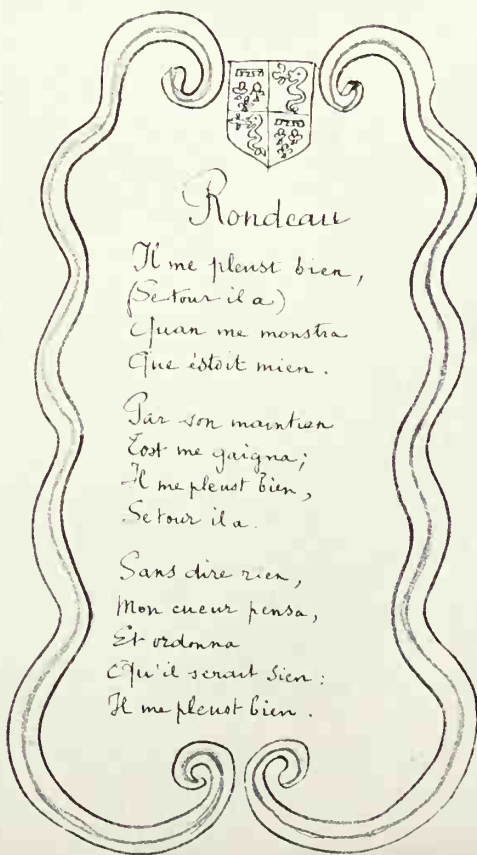 Rondeau
Il me pleust bien,
(Se tour il a)
Quan me monstra
Que éstoit mien.
Par son maintien
Tost me gaigna;
Il me pleust bien,
Se tour il a.
Sans dire rien,
Mon cueur pensa,
Et ordonna
Qu'il serait sien:
Il me pleust bien.